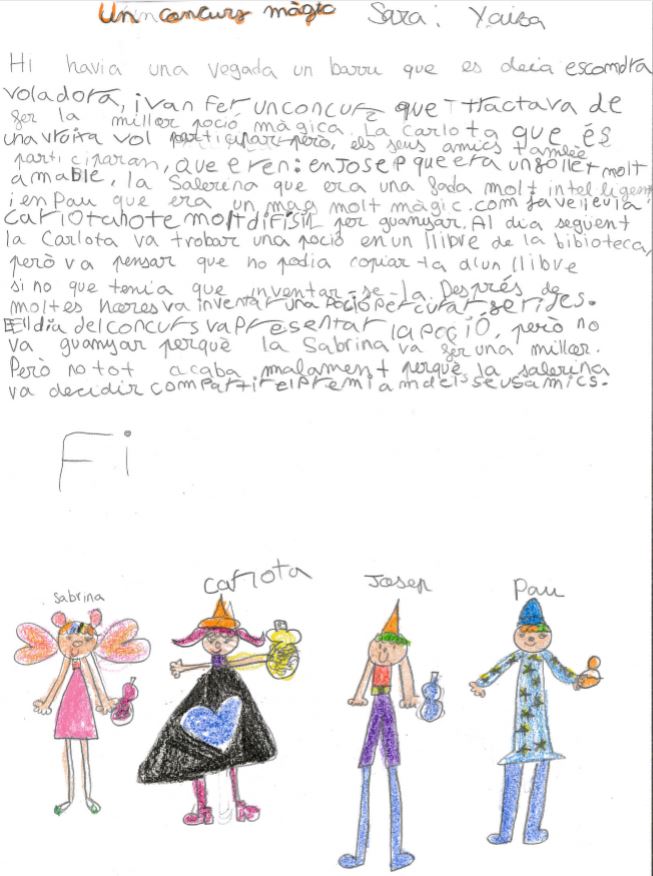 Un concurs màgic Sara i Yaiza
Hi havia una vegada un barri que es deia escombra
voladora, i van fer un concurs que tractava de
fer la millor poció màgica. La Carlota que és
una vruixa vol participar però, els seus amics també
participaran, que eren: en Josep que era un follet molt
amable, la Salerina que era una fada molt intel·ligent
i en Pau que era un mag molt màgic. com faveieu la
Carlota ho te molt difísil per guanyar. Al dia següent
la Carlota va trobar una poció en un llibre de la bibioteca,
però va pensar que no podia copiar-la d'un llibre
si no que tenia que inventar-se-la. Després de
moltes hores va inventar una poció per curar ferides.
El dia del concurs va presentar la poció, però no
va guanyar perquè la Sabrina va fer una millor.
Però no tot acaba malament perquè la salerina
va decidir compartir el premi amb els seus amics.
Fi
Sabrina Carlota Josep Pau